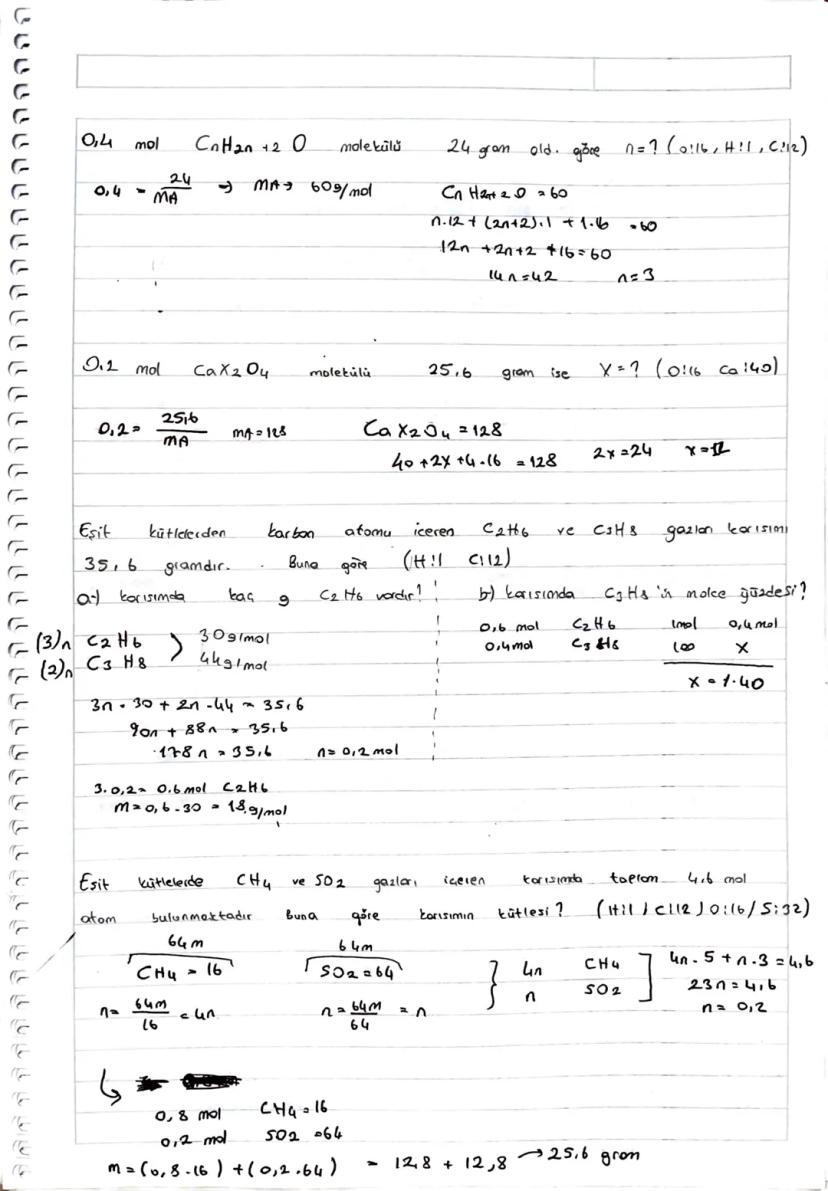 0,4 mol CnH2n+2 O molekülü 24 gram old. göre n=? (O:16, H:1, C:12)
0,4 = 24/MA → MA→ 60g/mol
CnH2n+2O = 60
n.12 + (2n+2).1 + 1.16 = 60
12n + 2n+2 + 16 = 60
14n = 42 n=3
0.2 mol CaX2O4 molekülü 25,6 gram ise X=? (O:16 Ca:40)
0,2 = 25,6/MA MA=128
CaX2O4 = 128
40 + 2X + 4.16 = 128 2x = 24 x = 12
Eşit kütlelerden karbon atomu içeren C2H6 ve C3H8 gazları karısımı
35,6 gramdır. Buna göre (H:1 C:12)
a-) karısımda kaç g C2H6 vardır?
(3)n C2H6 > 30g/mol
(2)n C3H8 44g/mol
3n.30 + 2n.44 = 35,6
90n + 88n = 35,6
178n = 35,6 n = 0,2 mol
3.0,2 = 0.6 mol C2H6
m = 0,6.30 = 18 g/mol
b-) karısımda C3H8 'in molce yüzdesi?
0,6 mol C2H6 1mol 0,4 mol
0,4mol C3H8 100 x
x = %40
Eşit kütlelerde CH4 ve SO2 gazları içeren karısımda toplam 4.6 mol
atom bulunmaktadır Buna göre karısımın kütlesi? (H:1 / C:12 / O:16 / S:32)
64m 64m
CH4 = 16 SO2 = 64
n = 64m/16 = 4n n = 64m/64 = n
} 4n CH4 ]
n SO2
4n.5 + n.3 = 4,6
23n = 4,6
n = 0,2
0,8 mol CH4 = 16
0,2 mol SO2 = 64
m = (0,8.16) + (0,2.64) = 12,8 + 12,8 → 25,6 gram